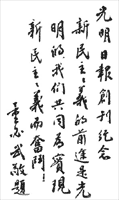 光明日報創刊纪念
新民主主義的前途是光
明的，我们共同為實現
新民主主義而奮鬥！
董必武敬題